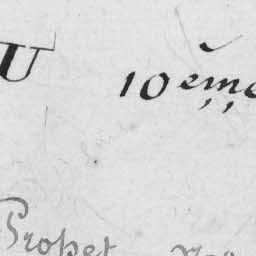 U 10ème
Propet